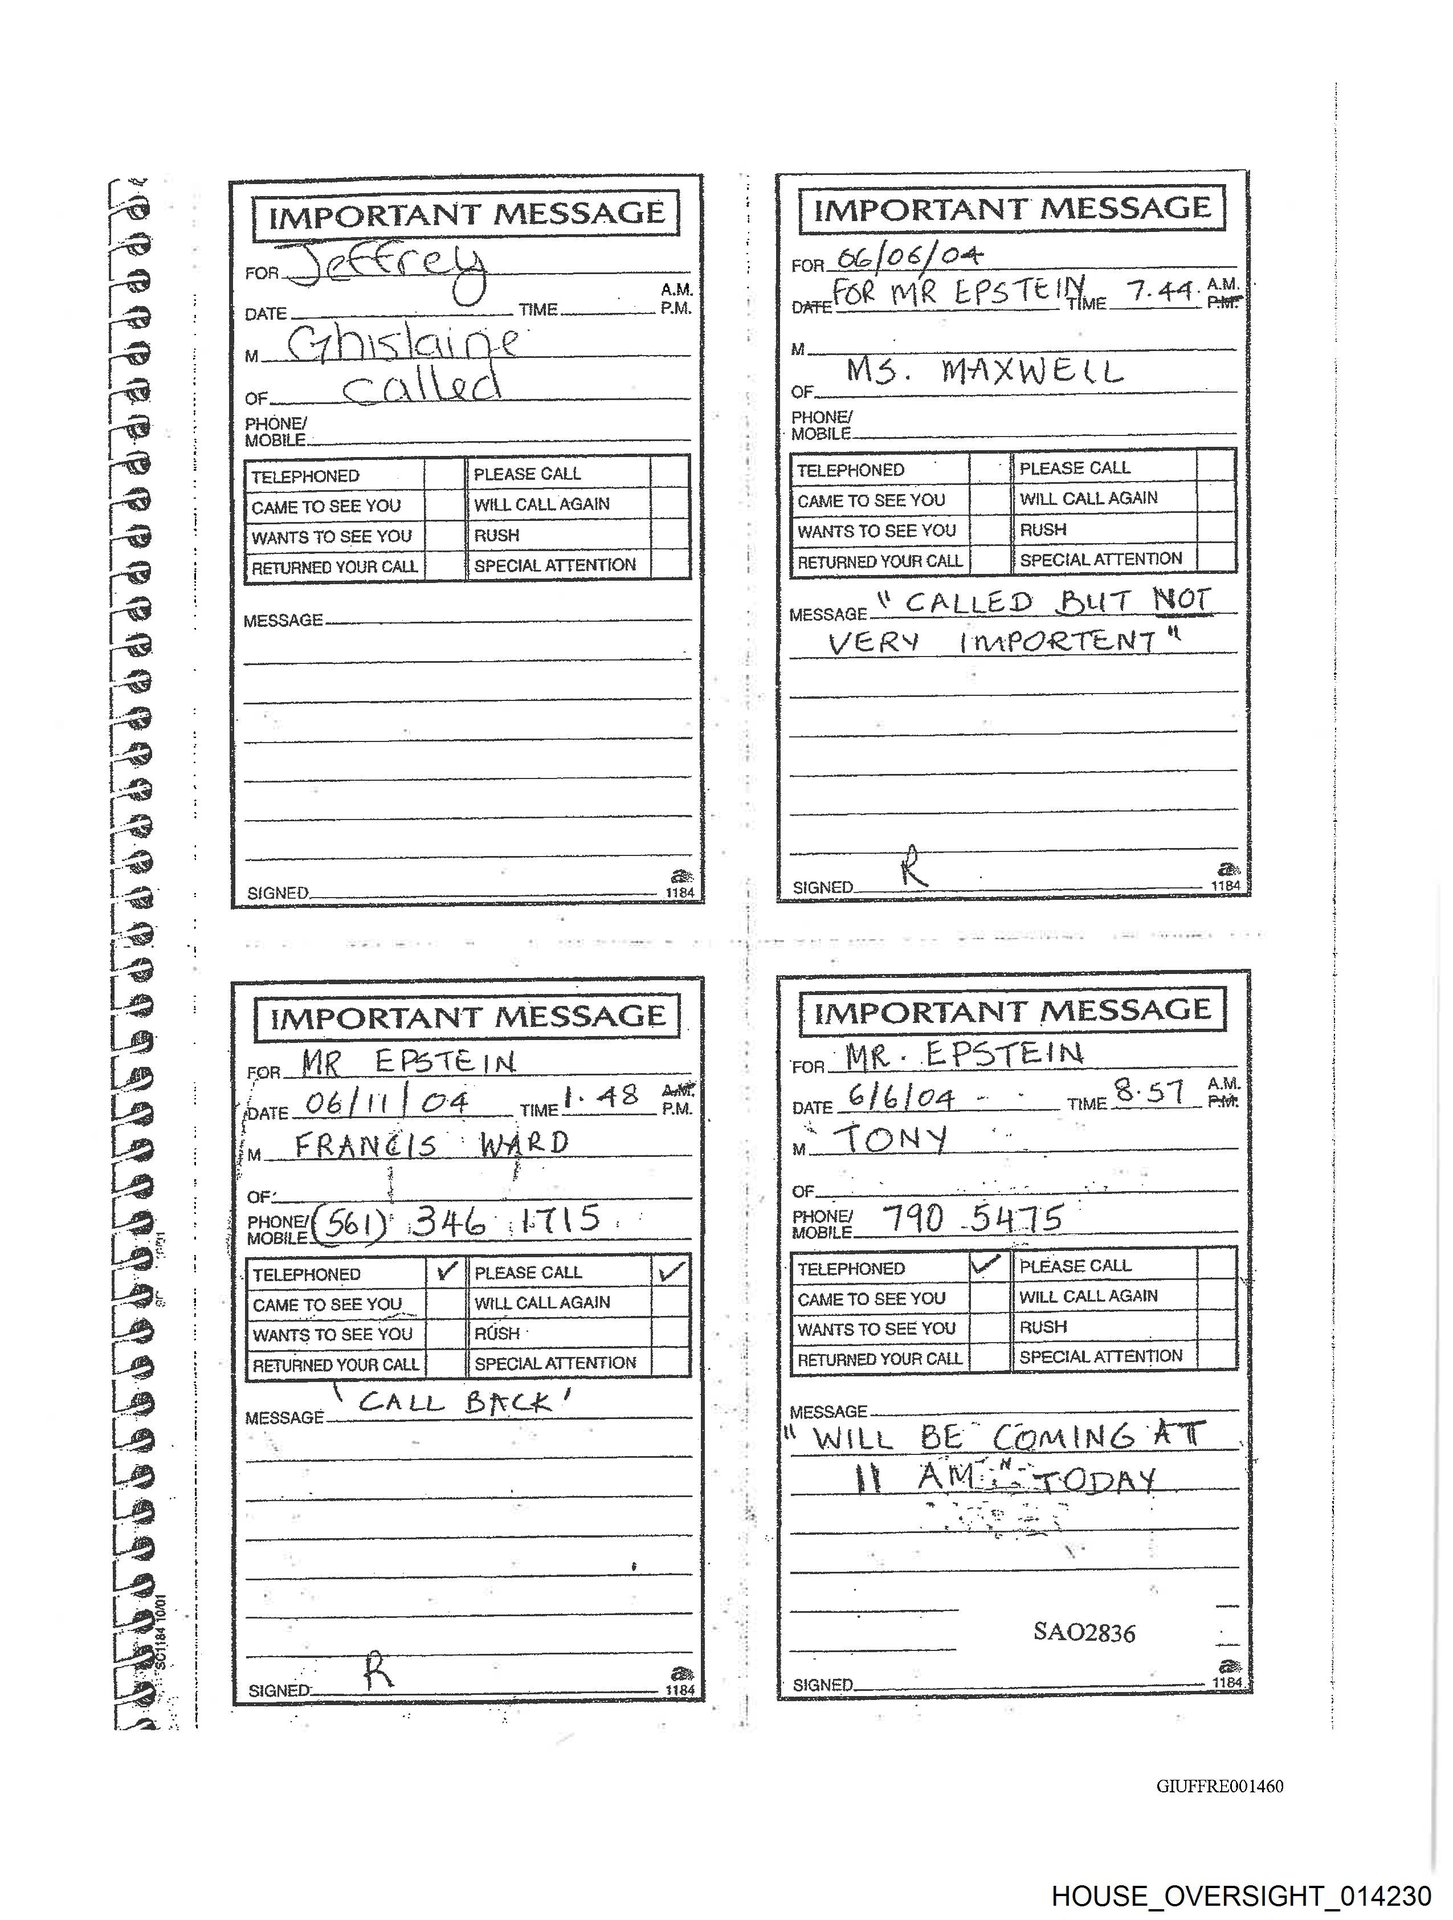 IMPORTANT MESSAGE
FOR Jeffrey
A.M.
DATE TIME P.M.
M Ghislaine
OF called
PHONE/
MOBILE
TELEPHONED PLEASE CALL
CAME TO SEE YOU WILL CALL AGAIN
WANTS TO SEE YOU RUSH
RETURNED YOUR CALL SPECIAL ATTENTION
MESSAGE
SIGNED 1184
IMPORTANT MESSAGE
FOR 06/06/04
DATE FOR MR EPSTEIN TIME 7.44 A.M.
P.M.
M
MS. MAXWELL
OF
PHONE/
MOBILE
TELEPHONED PLEASE CALL
CAME TO SEE YOU WILL CALL AGAIN
WANTS TO SEE YOU RUSH
RETURNED YOUR CALL SPECIAL ATTENTION
MESSAGE " CALLED BUT NOT
VERY IMPORTENT "
R
SIGNED 1184
IMPORTANT MESSAGE
FOR MR EPSTEIN
DATE 06/11/04 TIME 1.48 A.M.
P.M.
M FRANCIS WARD
OF
PHONE/
MOBILE (561) 346 1715
TELEPHONED ✓ PLEASE CALL ✓
CAME TO SEE YOU WILL CALL AGAIN
WANTS TO SEE YOU RUSH
RETURNED YOUR CALL SPECIAL ATTENTION
MESSAGE ' CALL BACK '
R
SIGNED 1184
IMPORTANT MESSAGE
FOR MR. EPSTEIN
DATE 6/6/04 TIME 8.57 A.M.
P.M.
M TONY
OF
PHONE/
MOBILE 790 5475
TELEPHONED ✓ PLEASE CALL
CAME TO SEE YOU WILL CALL AGAIN
WANTS TO SEE YOU RUSH
RETURNED YOUR CALL SPECIAL ATTENTION
MESSAGE
" WILL BE COMING AT
11 AM " TODAY
SAO2836
SIGNED 1184
SC1184 10/01
GIUFFRE001460
HOUSE_OVERSIGHT_014230